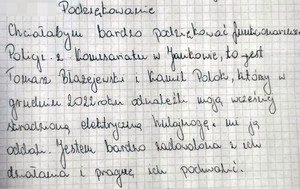 Podziękowanie
Chciałabym bardzo podziękować funkcjonariuszom
Policji z Komisariatu w Janikowie, to jest
Tomasz Błażejewski i Kamil Polak, którzy w
grudniu 2022 roku odnaleźli moją wcześniej
skradzioną elektryczną hulajnogę i mi ją
oddali. Jestem bardzo zadowolona z ich
działania i pragnę ich pochwalić.